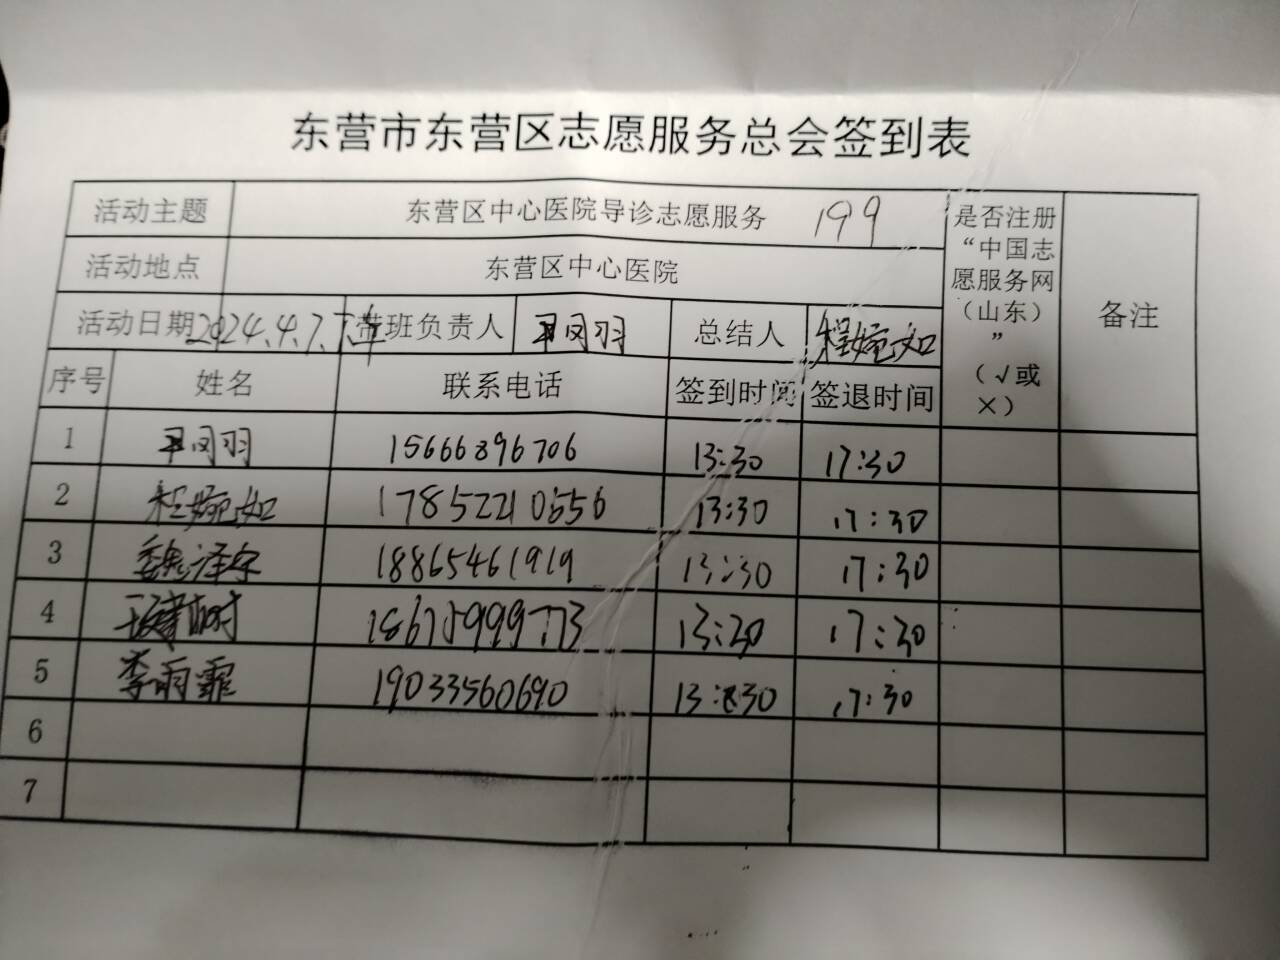 东营市东营区志愿服务总会签到表
活动主题 东营区中心医院导诊志愿服务 199 是否注册“中国志愿服务网（山东）”（√或×） 备注
活动地点 东营区中心医院
活动日期 2024.4.7.下午 带班负责人 王凤羽 总结人 程婉如
序号 姓名 联系电话 签到时间 签退时间
1 王凤羽 15666896706 13:30 17:30
2 程婉如 17852210556 13:30 17:30
3 魏泽宇 18865461919 13:30 17:30
4 13:30 17:30
5 李雨霏 19033560690 13:30 17:30
6
7